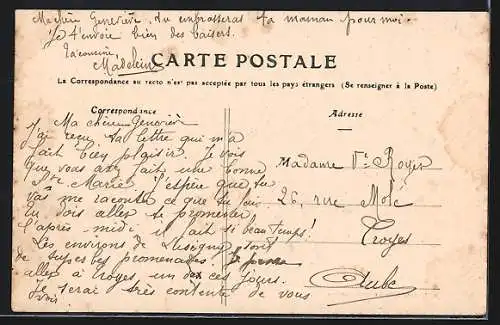 Ma chère Geneviève, tu embrasseras ta maman pour moi.
Je t'envoie bien des baisers.
Ta cousine,
Madeleine
CARTE POSTALE
La Correspondance au recto n'est pas acceptée par tous les pays étrangers (Se renseigner à la Poste)
Correspondance
Ma chère Geneviève
J'ai reçu ta lettre qui m'a
fait bien plaisir. Je vois
que vous avez fait une bonne
Ste Marie. J'espère que tu
vas me raconter ce que tu fais
tu dois aller te promener
l'après midi il fait si beau temps!
Les environs de Lusigny sont
de superbes promenades.
aller à Troyes, un de ces jours.
Je serai très contente de vous
voir
Adresse
Madame Ve Royer
26, rue Molé
Troyes
Aube